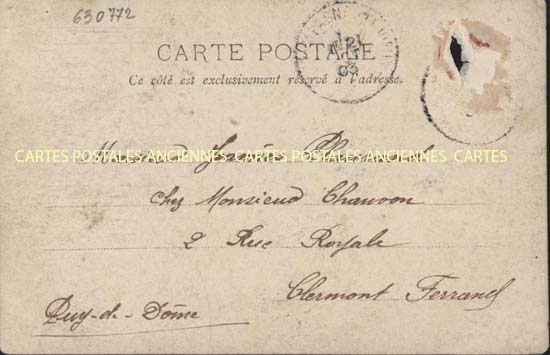 630772
CARTE POSTALE
Ce côté est exclusivement réservé à l'adresse.
CARTES POSTALES ANCIENNES CARTES POSTALES ANCIENNES CARTES
Monsieur
chez Monsieur Chauvon
2 Rue Royale
Clermont Ferrand
Puy-de-Dôme